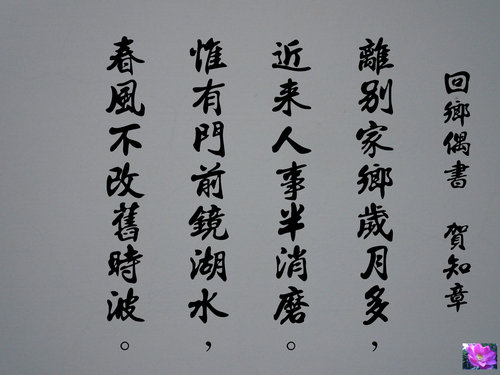 回鄉偶書 賀知章
離别家鄉歲月多，
近来人事半消磨。
惟有門前鏡湖水，
春風不改舊時波。